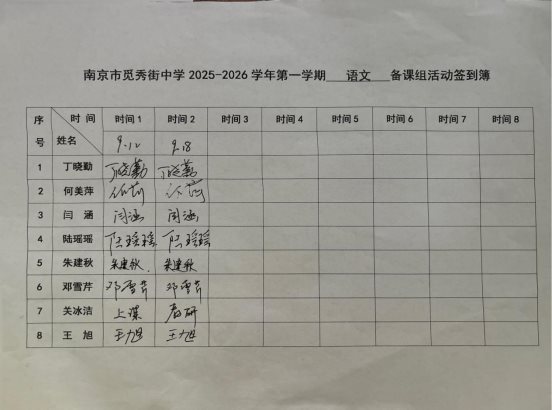 南京市觅秀街中学 2025-2026 学年第一学期 语文 备课组活动签到簿
序号 时间 姓名 时间 1 时间 2 时间 3 时间 4 时间 5 时间 6 时间 7 时间 8
9.12 9.18
1 丁晓勤 丁晓勤 丁晓勤
2 何美萍
3 闫 涵 闫涵 闫涵
4 陆瑶瑶 陆瑶瑶 陆瑶瑶
5 朱建秋 朱建秋. 朱建秋
6 邓雪芹 邓雪芹 邓雪芹
7 关冰洁 上课 教研
8 王 旭 王旭 王旭